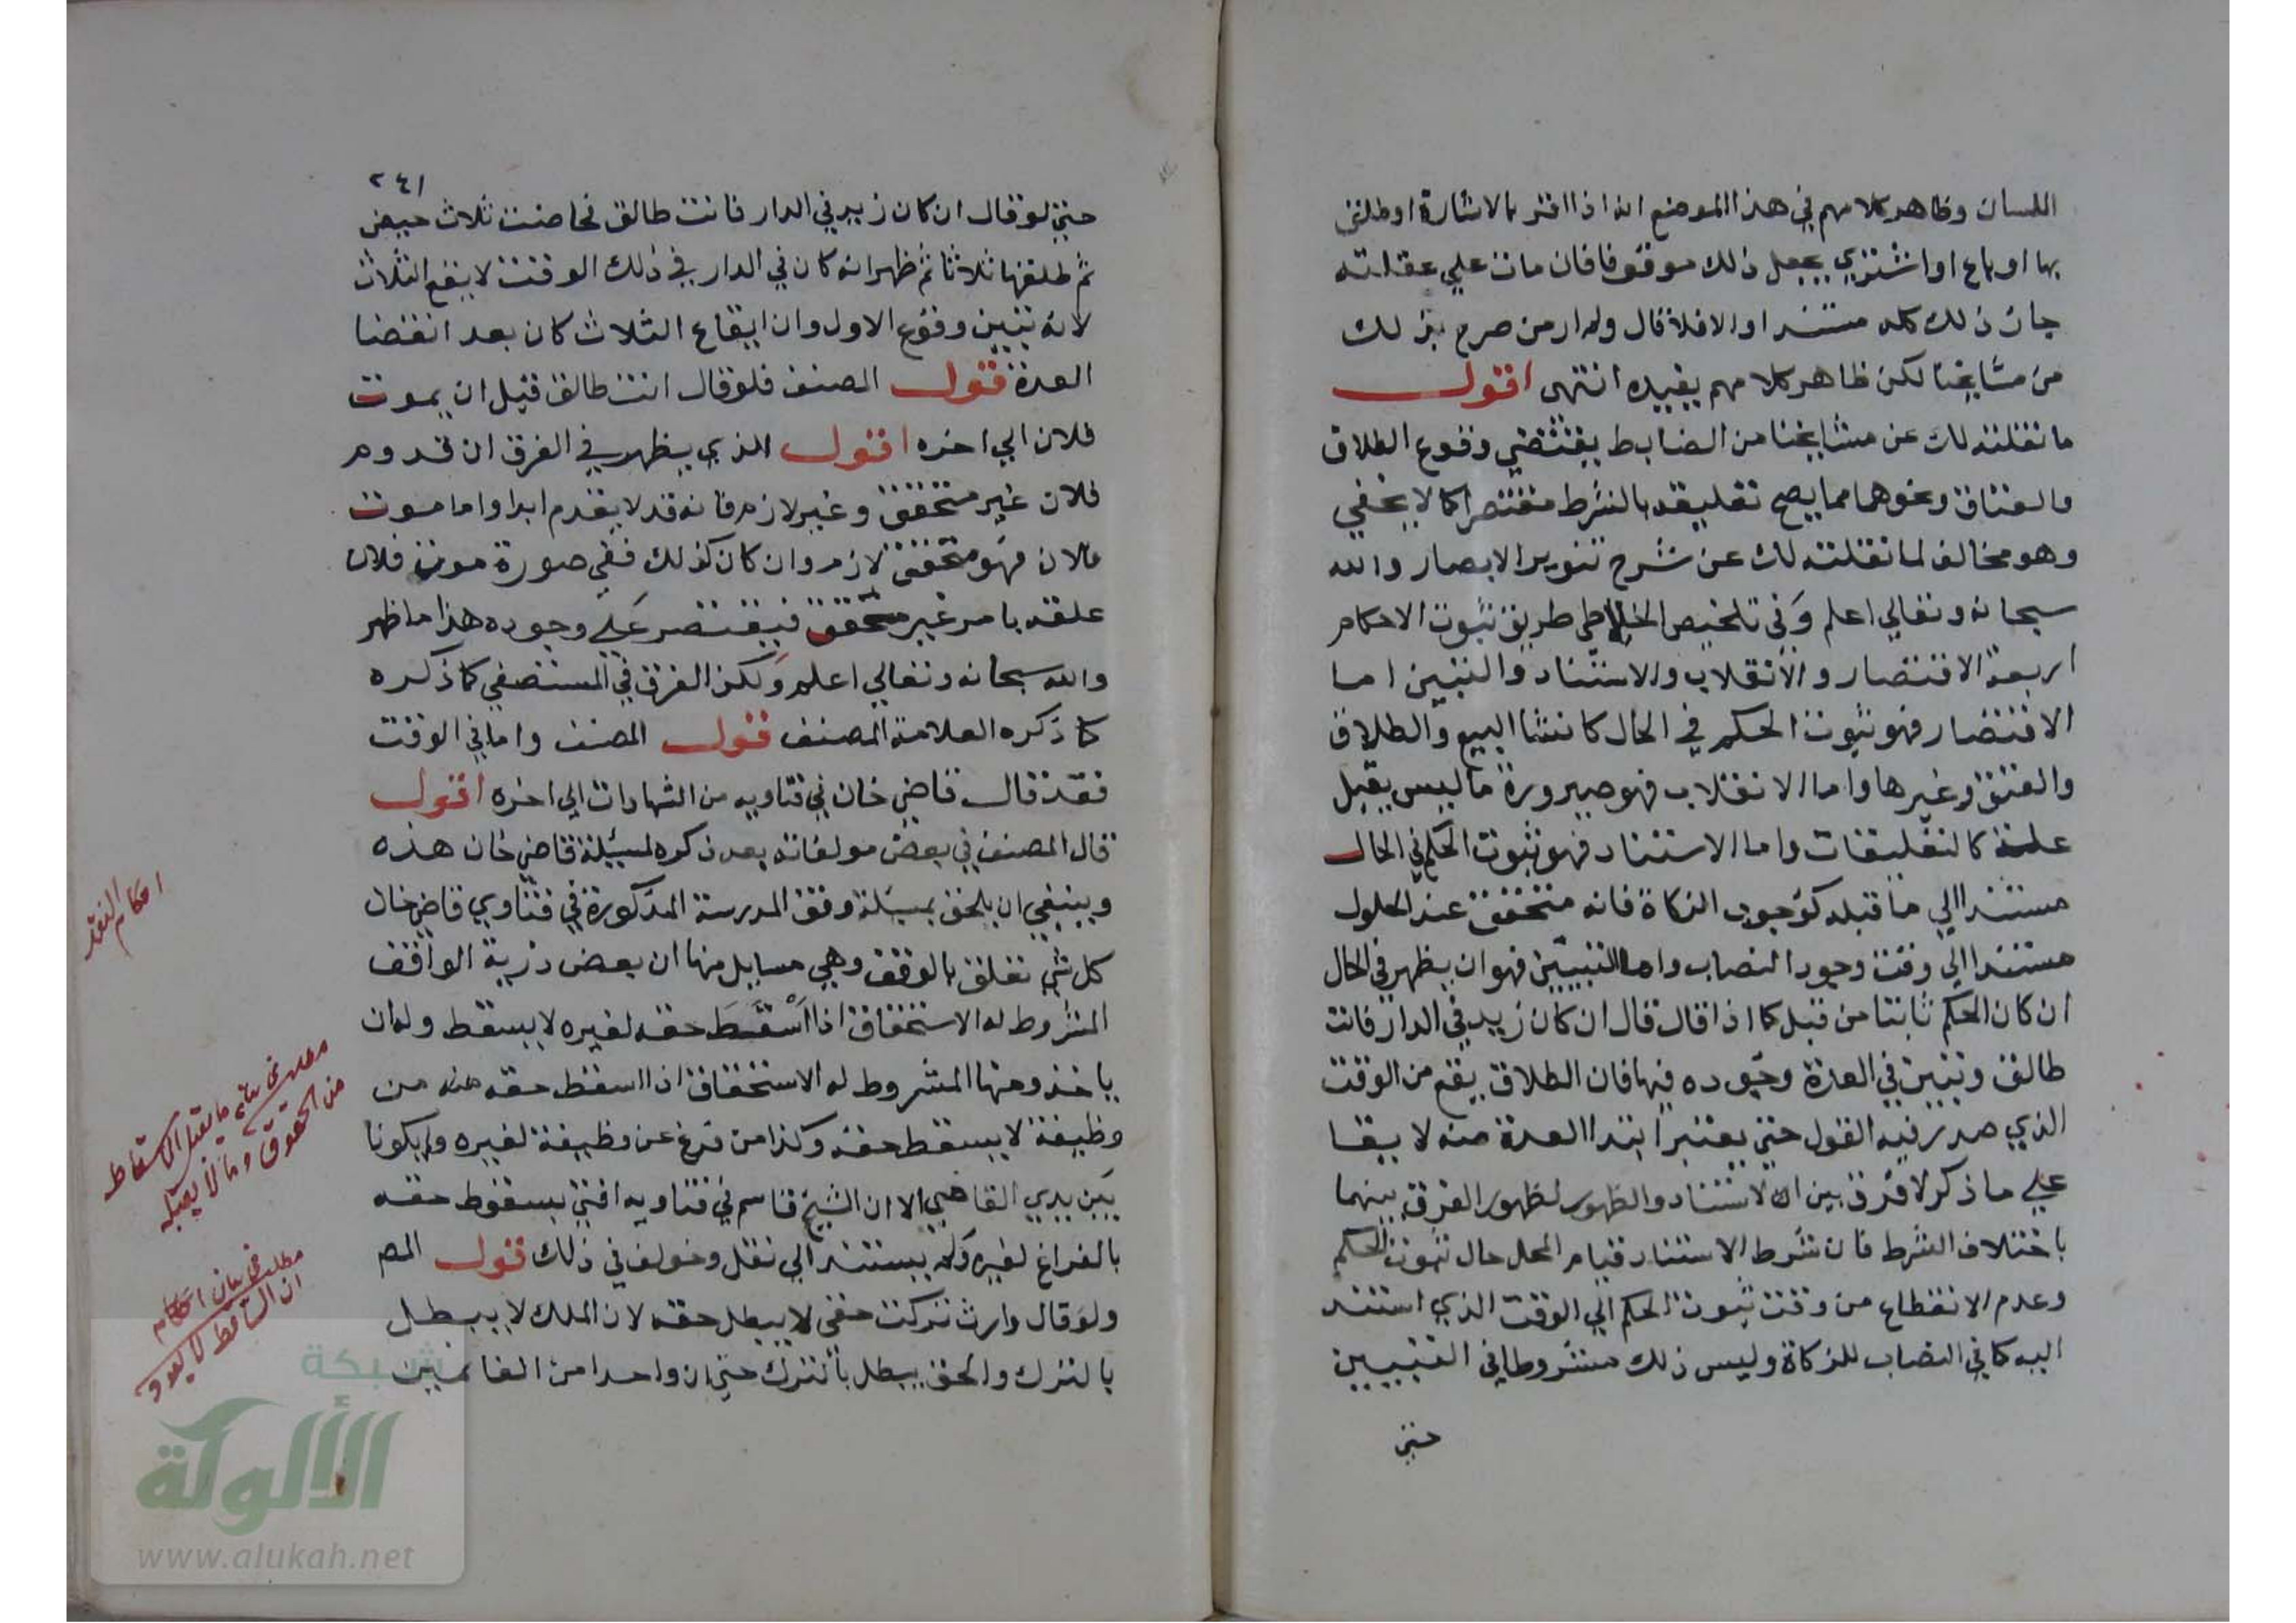 اللسان وظاهر كلامهم في هذا الموضع انه اذا اقر بالاشارة او طلق
بها او باع او اشتري يجعل ذلك موقوفا فان مات علي عقلته
جاز ذلك كله مستندا والا فلا قال ولم ار من صرح بذلك
من مشايخنا لكن ظاهر كلامهم يفيده انتهى اقول
ما نقلته لك عن مشايخنا من الضابط يقتضي وقوع الطلاق
والعتاق ونحوهما مما يصح تعليقه بالشرط مقتصرا كما لا يخفي
وهو مخالف لما نقلته لك عن شرح تنوير الابصار والله
سبحانه وتعالي اعلم وفي تلخيص الخلاطي طريق ثبوت الاحكام
اربعة الاقتصار والانقلاب والاستناد والتبيين اما
الاقتصار فهو ثبوت الحكم في الحال كانشا البيع والطلاق
والعتق وغيرها واما الانقلاب فهو صيرورة ما ليس بعلة
علة كالتعليقات واما الاستناد فهو ثبوت الحكم في الحال
مستندا الي ما قبله كوجوب الزكاة فانه متحقق عند الحلول
مستندا الي وقت وجود النصاب واما التبيين فهو ان يظهر في الحال
ان كان الحكم ثابتا من قبل كما اذا قال قال ان كان زيد في الدار فانت
طالق وتبين في العدة وجوده فيها فان الطلاق يقع من الوقت
الذي صدر فيه القول حتي يعتبر ابتدا العدة منه لا يقا
علي ما ذكر لا فرق بين الاستناد والظهور لظهور الفرق بينهما
باختلاف الشرط فان شرط الاستناد قيام المحل حال ثبوت الحكم
وعدم الانقطاع من وقت ثبوت الحكم الي الوقت الذي استند
اليه كما في النصاب للزكاة وليس ذلك مشروطا في التبيين
حتي
٢٤١
حتي لو قال ان كان زيد في الدار فانت طالق فحاضت ثلاث حيض
ثم طلقها ثلاثا ثم ظهر انه كان في الدار في ذلك الوقت لا يقع الثلاث
لانه تبين وقوع الاول وان ايقاع الثلاث كان بعد انقضا
العدة قول المصنف فلو قال انت طالق قبل ان يموت
فلان الي اخره اقول الذي يظهر في الفرق ان قدوم
فلان غير متحقق وغير لازم فانه قد لا يقدم ابدا واما موت
فلان فهو متحقق لازم وان كان كذلك ففي صورة موت فلان
علقه بامر غير محقق فيقتصر علي وجوده هذا ما ظهر
والله سبحانه وتعالي اعلم ولكن الفرق في المستصفي كما ذكره
كما ذكره العلامة المصنف قول المصنف واما في الوقت
فقد قال قاضي خان في فتاويه من الشهادات الي اخره اقول
قال المصنف في بعض مولفاته بعد ذكره لمسيلة قاضي خان هذه
وينبغي ان يلحق بمسيلة وقف المدرسة المذكورة في فتاوي قاضي خان
كل شي تعلق بالوقف وهي مسايل منها ان بعض ذرية الواقف
المشروط له الاستحقاق اذا اسقط حقه لغيره لا يسقط وله ان
ياخذ ومنها المشروط له الاستحقاق اذا اسقط حقه منه من
وظيفة لا يسقط حقه وكذا من فرغ عن وظيفة لغيره ولم يكونا
بين يدي القاضي الا ان الشيخ قاسم في فتاويه افتي بسقوط حقه
بالفراغ لغيره ولم يستند الي نقل وخولف في ذلك قول المص
ولو قال وارث تركت حقي لا يبطل حقه لان الملك لا يبطل
بالترك والحق يبطل بالترك حتي ان واحدا من الغانمين
احكام النقد
مطلب في بيان ما يقبل الاسقاط
من الحقوق وما لا يقبله
مطلب في بيان احكام
ان الساقط لا يعود
شبكة
الألوكة
www.alukah.net